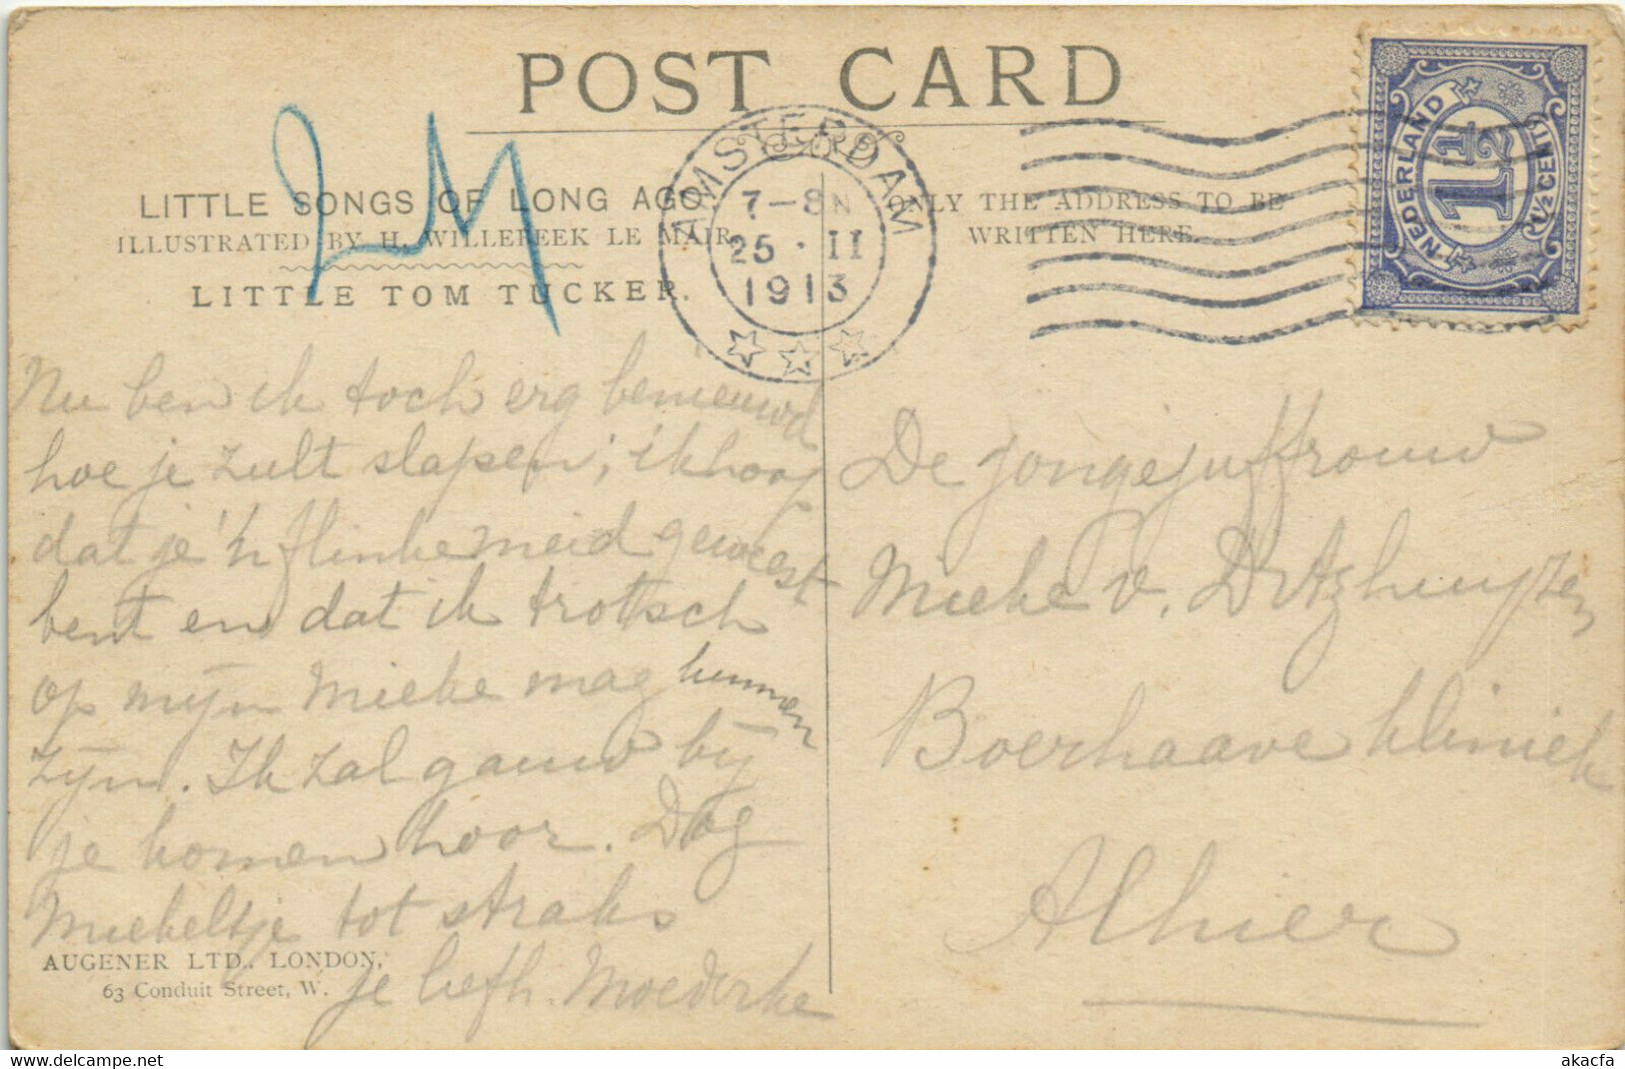 POST CARD
LITTLE SONGS OF LONG AGO
ILLUSTRATED BY H. WILLEBEEK LE MAIR
LITTLE TOM TUCKER.
AMSTERDAM
7-8N
25·II
1913
ONLY THE ADDRESS TO BE
WRITTEN HERE.
NEDERLAND
1½
1½ CENT
Nu ben ik toch erg benieuwd
hoe je zult slapen; ik hoop
dat je 'n flinke meid geweest
bent en dat ik trotsch
op mijn Mieke mag kunnen
zijn. Ik zal gauw bij
je komen hoor. Dag
Miekeltje tot straks
je liefh. Moederke
AUGENER LTD., LONDON,
63 Conduit Street, W.
De jongejuffrouw
Mieke v.
Boerhaave kliniek
Alhier
akacfa